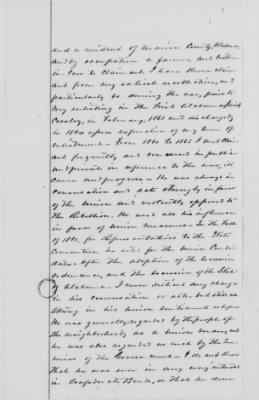 and a resident of Marion County, Alabama,
and by occupation a farmer, and brother
in-law to claimant, I have known claim-
ant from my earliest recollection, and
particularly so during the war, prior to
my enlisting in the First Alabama
Cavalry, in February, 1863 and discharged
in 1864 upon expiration of my term of
enlistment - From 1861 to 1863 I met claim-
ant frequently and conversed in public
and private in reference to the war, its
cause and progress. He was always in
conversation and acts strongly in favor
of the Union and violently opposed to
the Rebellion. He used all his influence
in favor of Union measures. In the Fall
of 1861, for Representatives to the State
Convention he voted for the Union Candi-
dates. After the adoption of the Secession
ordinance, and the Secession of the State
of Alabama - I never noticed any change
in his conversation or acts but
strong in his Union sentiments
He was generally regarded by the people of
the neighborhood as a Union man, and
he was also regarded as such by the En-
emies of the Government - I do not know
that he was ever in any way interested
in Confederate Bonds, or that he done